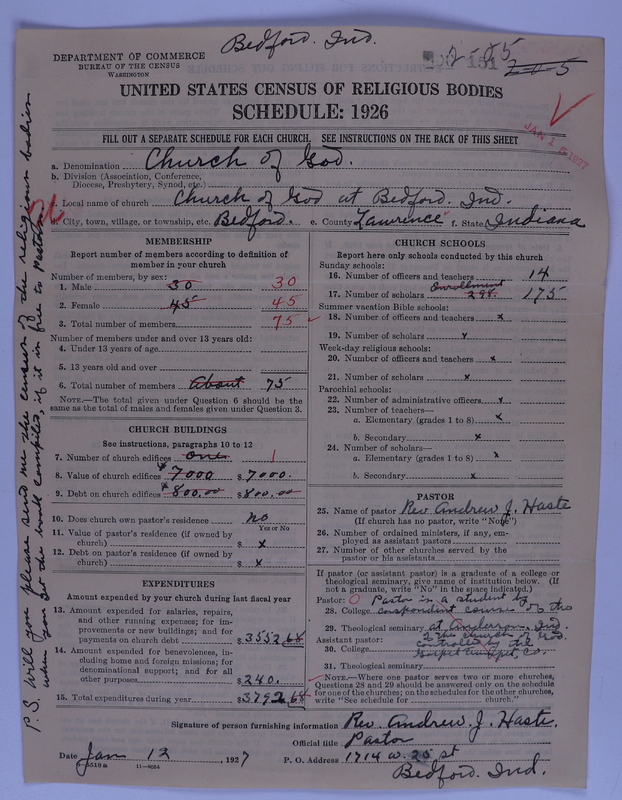 Bedford. Ind.
DEPARTMENT OF COMMERCE
BUREAU OF THE CENSUS
WASHINGTON
205
UNITED STATES CENSUS OF RELIGIOUS BODIES
SCHEDULE: 1926
FILL OUT A SEPARATE SCHEDULE FOR EACH CHURCH. SEE INSTRUCTIONS ON THE BACK OF THIS SHEET
a. Denomination Church of God.
b. Division (Association, Conference, Diocese, Presbytery, Synod, etc.)
Local name of church Church of God at Bedford. Ind.
City, town, village, or township, etc. Bedford. e. County Lawrence f. State Indiana
MEMBERSHIP
Report number of members according to definition of member in your church
Number of members, by sex:
1. Male 30 30
2. Female 45 45
3. Total number of members 75
Number of members under and over 13 years old:
4. Under 13 years of age
5. 13 years old and over
6. Total number of members About 75
NOTE.—The total given under Question 6 should be the same as the total of males and females given under Question 3.
CHURCH BUILDINGS
See instructions, paragraphs 10 to 12
7. Number of church edifices one 1
8. Value of church edifices $7000 $7000.
9. Debt on church edifices $800.00 $800.00
10. Does church own pastor's residence No
Yes or No
11. Value of pastor's residence (if owned by church) $ x
12. Debt on pastor's residence (if owned by church) $ x
EXPENDITURES
Amount expended by your church during last fiscal year
13. Amount expended for salaries, repairs, and other running expenses; for improvements or new buildings; and for payments on church debt $3552.68
14. Amount expended for benevolences, including home and foreign missions; for denominational support; and for all other purposes $240.
15. Total expenditures during year $3792.68
CHURCH SCHOOLS
Report here only schools conducted by this church
Sunday schools:
16. Number of officers and teachers 14
17. Number of scholars Enrollment 298. 175
Summer vacation Bible schools:
18. Number of officers and teachers x
19. Number of scholars x
Week-day religious schools:
20. Number of officers and teachers x
21. Number of scholars x
Parochial schools:
22. Number of administrative officers x
23. Number of teachers—
a. Elementary (grades 1 to 8) x
b. Secondary x
24. Number of scholars—
a. Elementary (grades 1 to 8) x
b. Secondary x
PASTOR
25. Name of pastor Rev. Andrew J. Haste
(If church has no pastor, write "None")
26. Number of ordained ministers, if any, employed as assistant pastors
27. Number of other churches served by the pastor or his assistants
If pastor (or assistant pastor) is a graduate of a college or theological seminary, give name of institution below. (If not a graduate, write "No" in the space indicated.)
Pastor: O Pastor is a student by
28. College correspondent course to the
29. Theological seminary at Anderson, Ind.
Assistant pastor: The church of God.
30. College controlled by the
Gospel Trumpet Co.
31. Theological seminary
NOTE.—Where one pastor serves two or more churches, Questions 28 and 29 should be answered only on the schedule for one of the churches; on the schedules for the other churches, write "See schedule for church."
Signature of person furnishing information Rev. Andrew J. Haste.
Official title Pastor
Date Jan 12, 1927 P. O. Address 1714 W. 25 st
Bedford. Ind.
P.S. Will you please send me the census of the religious bodies
when you get the book compiled, if it is free to Pastors.